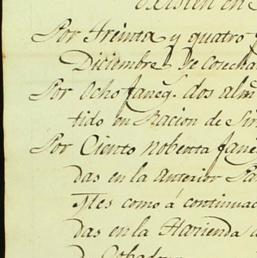 existen en
Por treinta y quatro
Diciembre de Cosecha
Por Ocho faneg.s dos alm
tido en Racion de Sir
Por Ciento nobenta fane
das en la anterior Pa
tles como á continuac
das en la Hazienda